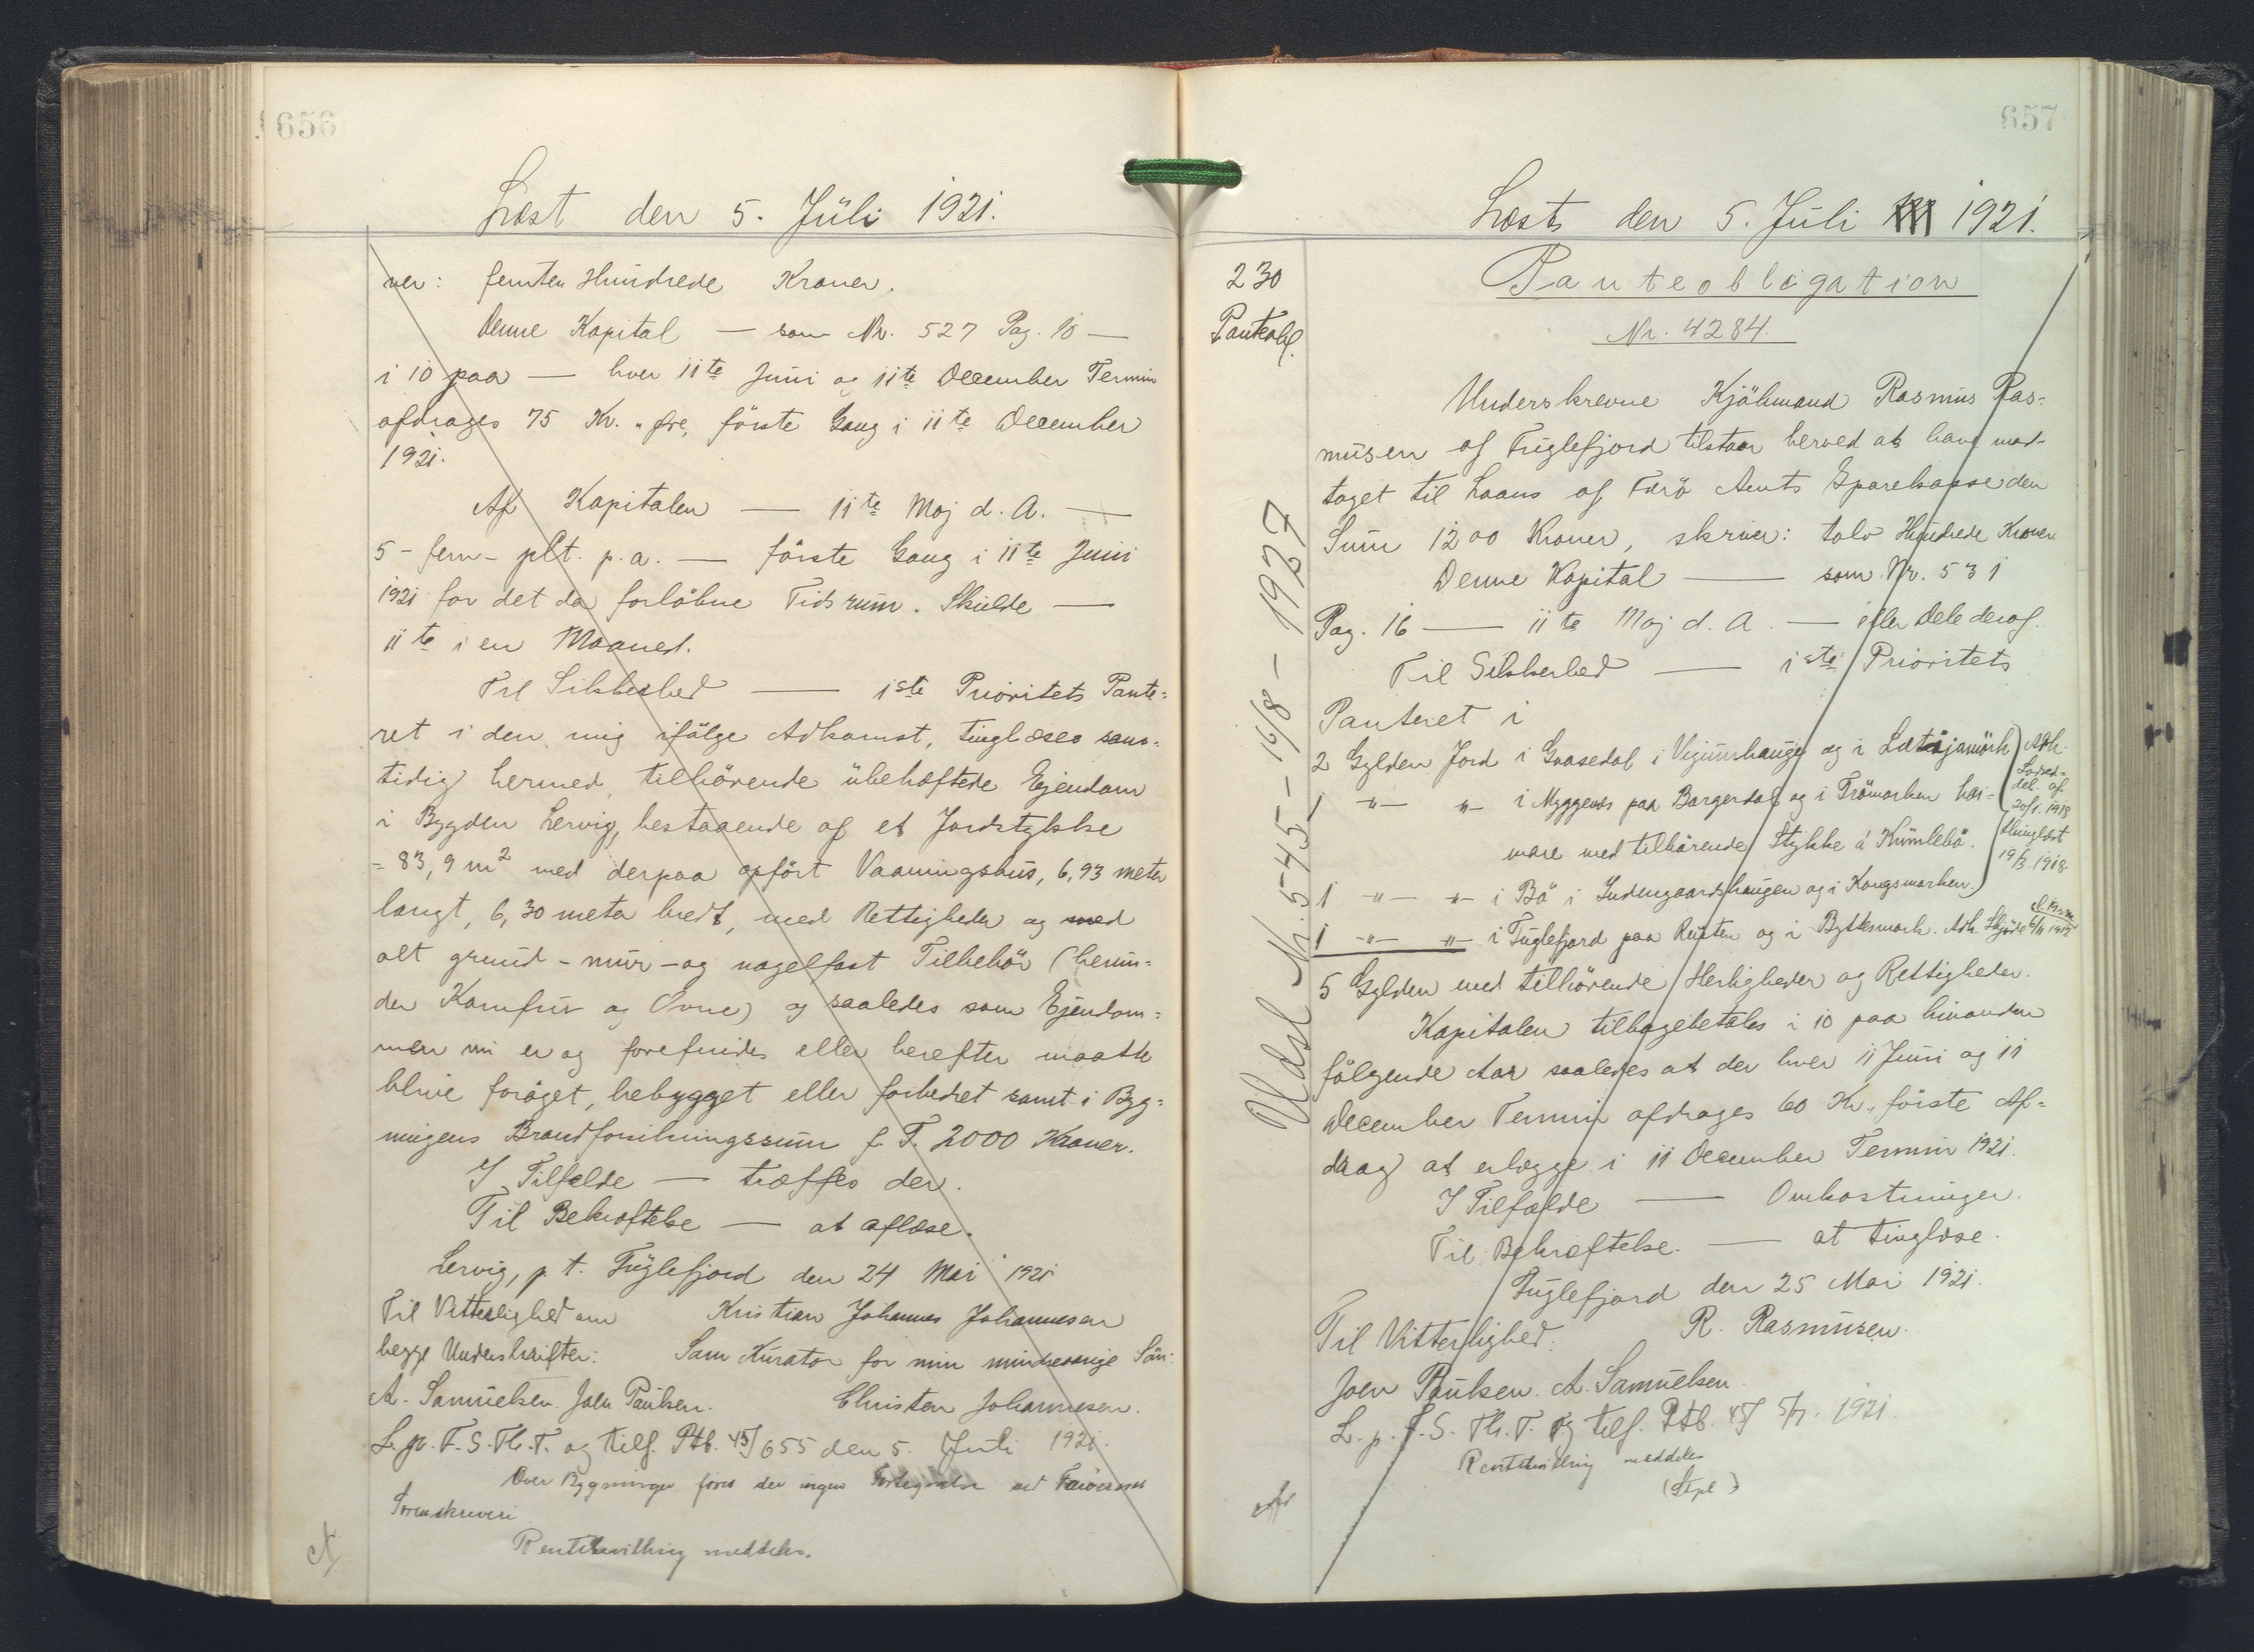 656
Læst den 5. Juli 1921.
ver: femten Hundrede Kroner.
Denne Kapital — som Nr. 527 Pag. 10 —
i 10 paa — hver 11te Juni og 11te December Termin
afdrages 75 Kr. " Øre, förste Gang i 11te December
1921.
Af Kapitalen — 11te Maj d. A. —
5 - fem - pCt. p.a. — förste Gang i 11te Juni
1921 for det da forlöbne Tidsrum. Skulde —
11te i en Maaned.
Til Sikkerhed — 1ste Prioritets Pante=
ret i den mig ifölge Adkomst, tinglæses sam=
tidig hermed, tilhörende ubehæftede Ejendom
i Bygden Lervig, bestaaende af et Jordstykke
= 83,9 m2 med derpaa opfört Vaaningshus, 6,93 meter
langt, 6,30 meter bredt, med Rettigheder og med
alt grund- mur- og nagelfast Tilbehör (herun=
der Komfur og Ovne) og saaledes som Ejendom=
men nu er og forefindes eller herefter maatte
blive foröget, bebygget eller forbedret samt i Byg=
ningens Brandforsikringssum f. T. 2000 Kroner.
I Tilfælde — træffes der.
Til Bekræftelse — at aflæse.
Lervig, p. t. Fuglefjord den 24 Mai 1921
Til Vitterlighed om Kristian Johannes Johannesen
begge Underskrifter: Som Kurator for min mindreaarige Sön:
A. Samuelsen. Joen Paulsen. Christen Johannesen.
L. p. F. S. Th. T. og tilf. Ptb. 45/655 den 5. Juli 1921.
Over Bygninger föres der ingen Fortegnelse ved Færöernes
Sorenskriveri.
Rentebevilling meddeles.
657
Læst den 5. Juli 1921.
230
Panteobl.
Panteobligation
Nr. 4284.
Underskrevne Kjöbmand Rasmus Ras=
musen af Fuglefjord tilstaar herved at have mod-
taget til Laans af Færö Amts Sparekasse den
Sum 1200 Kroner, skriver: tolv Hundrede Kroner
Denne Kapital — som Nr. 531
Pag. 16 — 11te Maj d. A. — eller Dele deraf.
Til Sikkerhed — 1ste Prioritets
Panteret i
2 Gylden Jord i Gaasedal i Viguunhauge og i Lætisjamörk
1 -"- "- i Myggenæs paa Borgerdal og i Trömarken hei-
mare med tilhörende Stykke á Kumlebö.
1 -"- "- i Bö i Indengaardshaugen og i Kongsmarken
Adk.
Lodsed-
del. af
20/1. 1918
thinglæst
19/3. 1918.
1 -"- "- i Fuglefjord paa Reyten og i Byttsmark. Adk. Skjöde 6/11 1912
5 Gylden med tilhörende Herligheder og Rettigheder.
Kapitalen tilbagebetales i 10 paa hinanden
fölgende Aar saaledes at der hver 11 Juni og 11
December Termin afdrages 60 Kr., förste Af=
drag at erlægge i 11 December Termin 1921.
I Tilfælde — Omkostninger.
Til Bekræftelse. — at tinglæse.
Fuglefjord den 25 Mai 1921.
Til Vitterlighed: R. Rasmusen.
Joen Paulsen. A. Samuelsen.
L. p. F. S. Th. T. og tilf. Ptb. 45/ 5/7. 1921.
Rentebevilling meddeles
(Stpl)
Udsl Nr. 545 - 16/8 - 1927